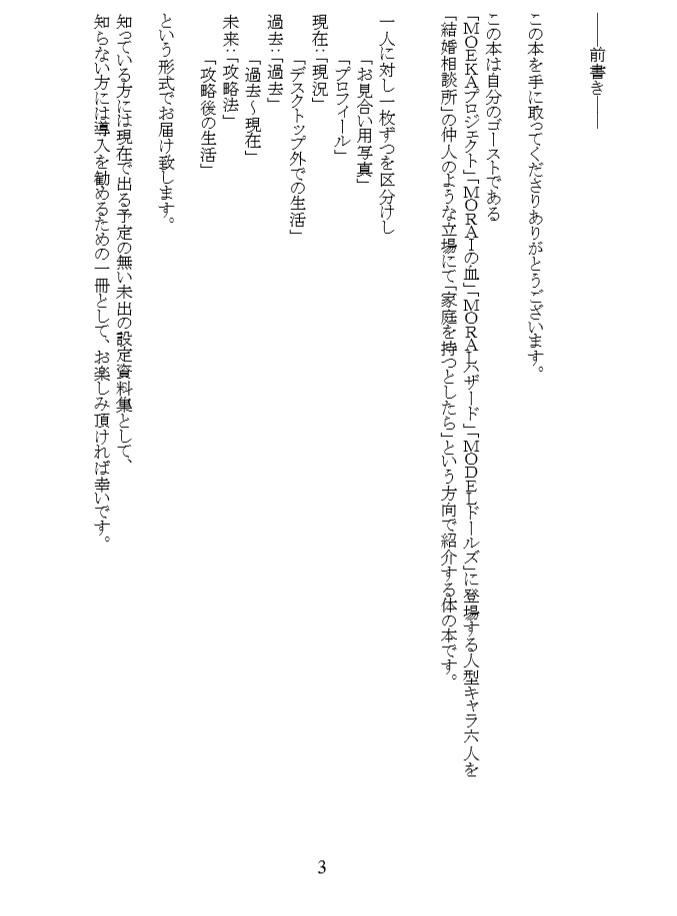 ――前書き――
この本を手に取ってくださりありがとうございます。
この本は自分のゴーストである
「MOEKAプロジェクト」「MORAIの血」「MORALハザード」「MODELドールズ」に登場する人型キャラ六人を
「結婚相談所」の仲人のような立場にて「家庭を持つとしたら」という方向で紹介する体の本です。
一人に対し一枚ずつを区分けし
「お見合い用写真」
「プロフィール」
現在：「現況」
「デスクトップ外での生活」
過去：「過去」
「過去～現在」
未来：「攻略法」
「攻略後の生活」
という形式でお届け致します。
知っている方には現在で出る予定の無い未出の設定資料集として、
知らない方には導入を勧めるための一冊として、お楽しみ頂ければ幸いです。
3